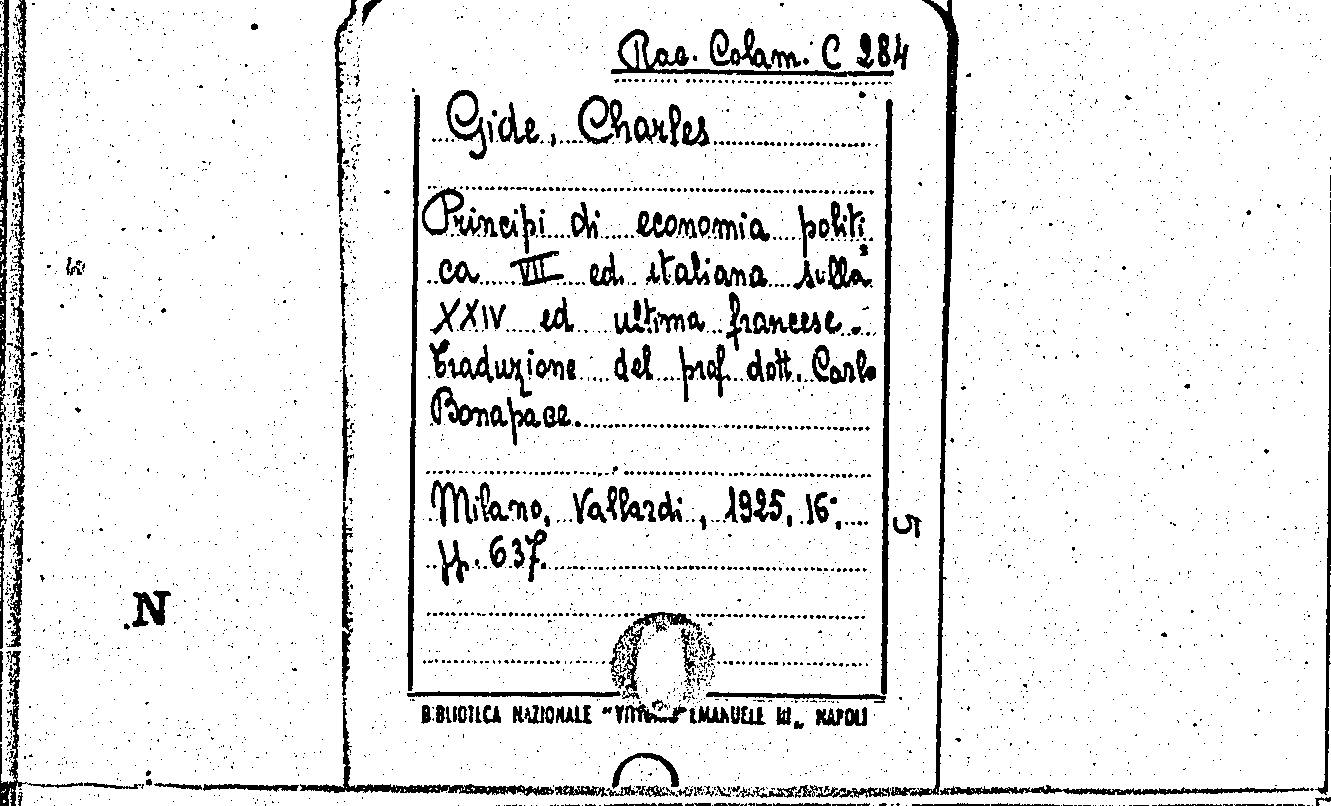 Rac. Colam. C 284
Gide, Charles
Principi di economia politi
ca VII ed. italiana sulla
XXIV ed ultima francese.
Traduzione del prof. dott. Carlo
Bonapace.
Milano, Vallardi, 1925, 16°,
pp. 637.
5
N
BIBLIOTECA NAZIONALE "VITTORIO EMANUELE III„ NAPOLI